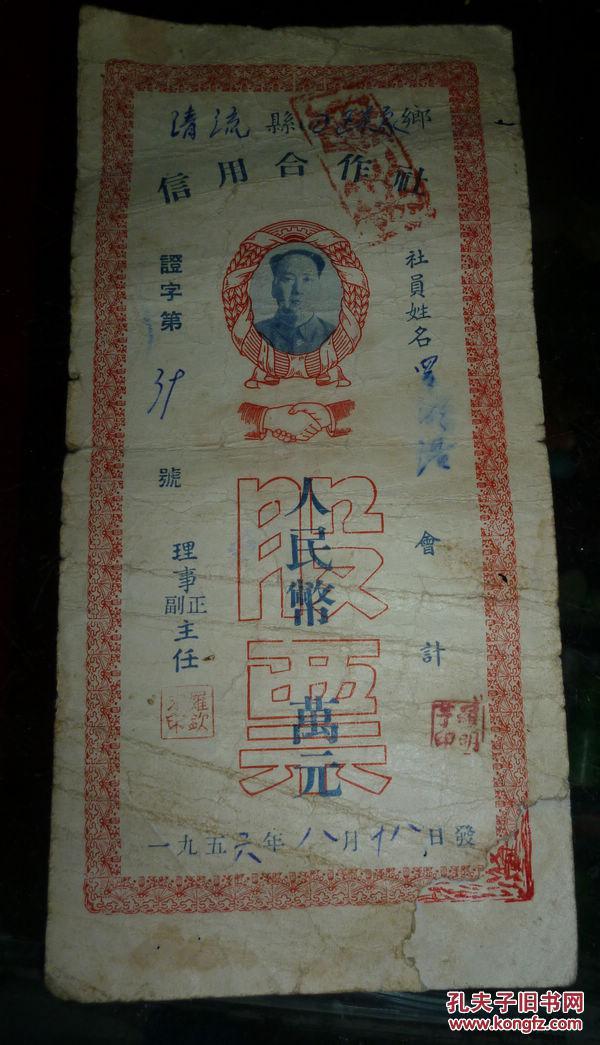 清流縣 鄉
信用合作社
社員姓名 羅
會計
股票
人民幣 萬元
證字第 號
理事正副主任
羅欽 印
明 印
一九五六年八月十八日發
孔夫子旧书网
www.kongfz.com